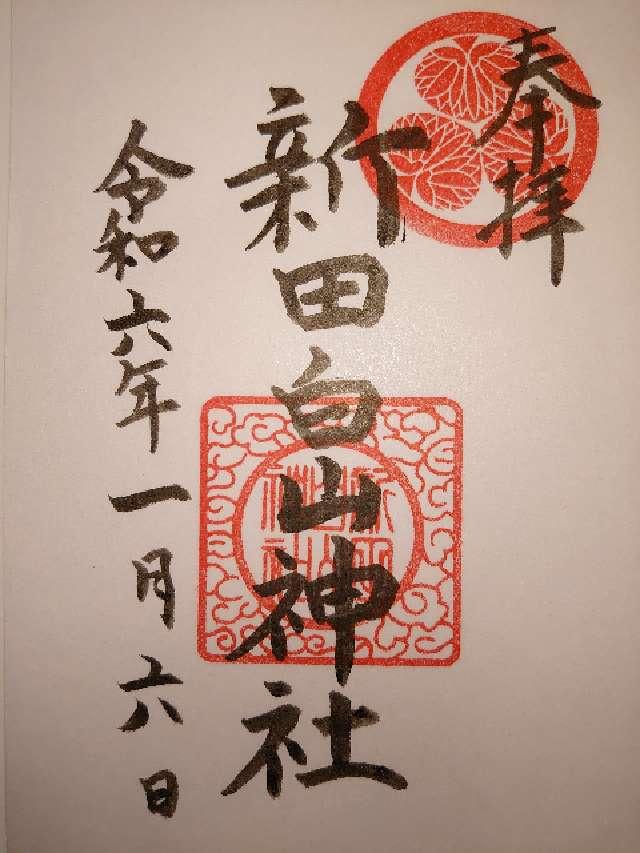 奉拝
新田白山神社
令和六年一月六日